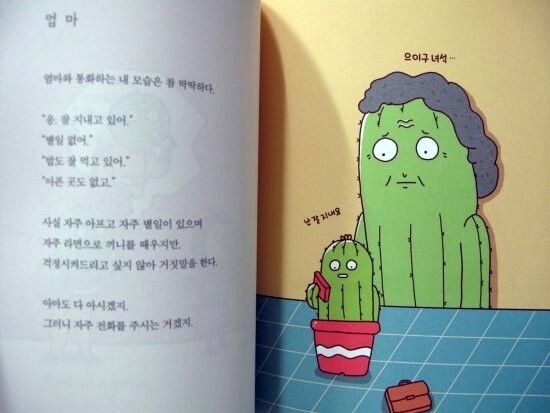 엄마
엄마와 통화하는 내 모습은 참 딱딱하다.
"응. 잘 지내고 있어."
"별일 없어."
"밥도 잘 먹고 있어."
"아픈 곳도 없고."
사실 자주 아프고 자주 별일이 있으며
자주 라면으로 끼니를 때우지만.
걱정시켜드리고 싶지 않아 거짓말을 한다.
아마도 다 아시겠지.
그러니 자주 전화를 주시는 거겠지.
으이구 녀석…
난 잘 지내요